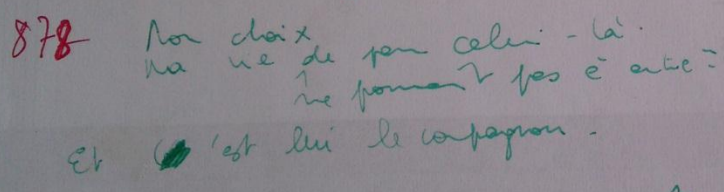 878 Mon choix
ma vie de peu celui-là.
ne pouvant pas ê
Et c'est lui le compagnon.